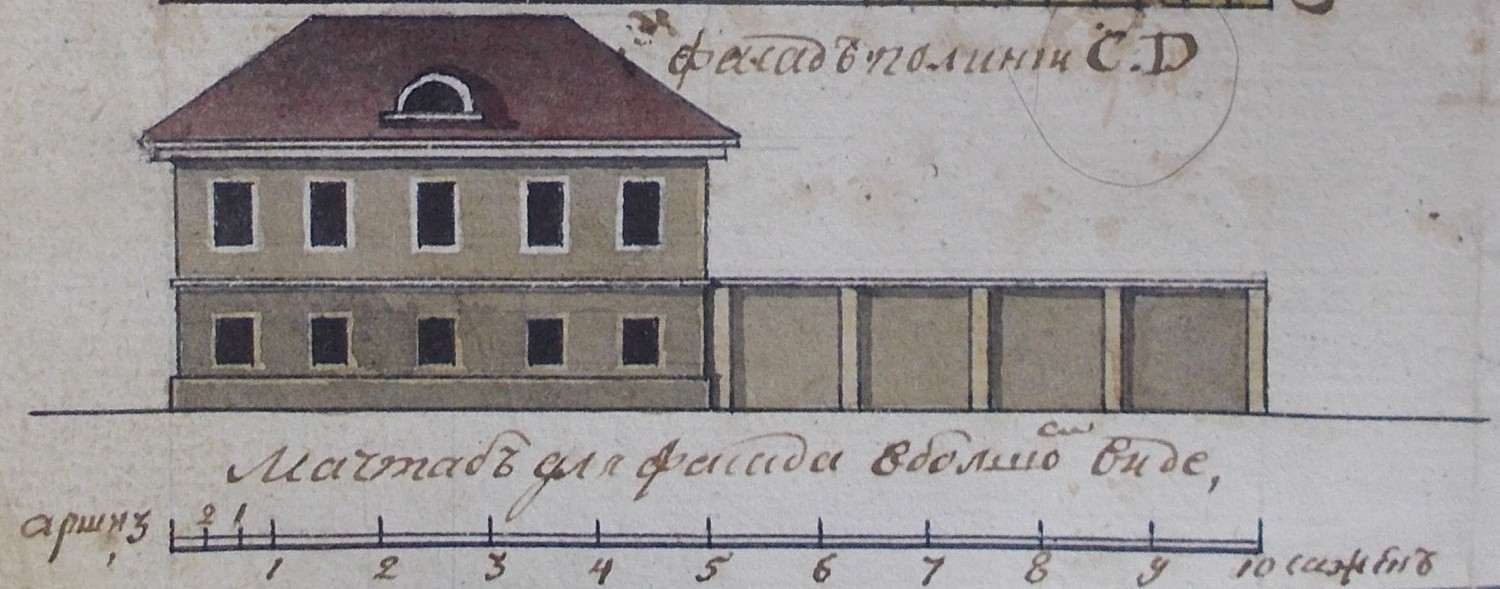 фасадъ полинiи C.D
Мачтабъ для фасада вбольшомъ виде,
аршинъ 2 1
1 2 3 4 5 6 7 8 9 10 саженъ